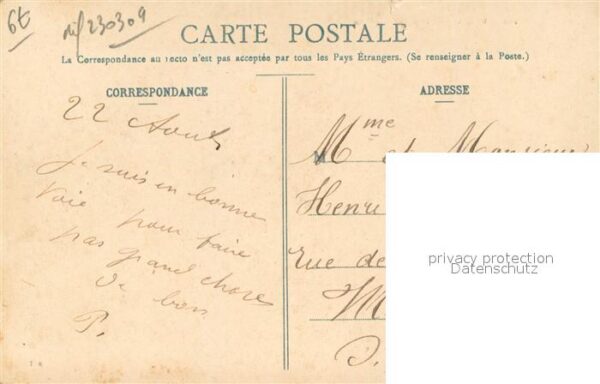 6t
230309
CARTE POSTALE
La Correspondance au recto n'est pas acceptée par tous les Pays Étrangers. (Se renseigner à la Poste.)
CORRESPONDANCE
22 Aout
Je suis en bonne
voie pour faire
pas grand chose
de bon
P.
ADRESSE
Mme et Monsieur
Henri
rue de
M
privacy protection
Datenschutz